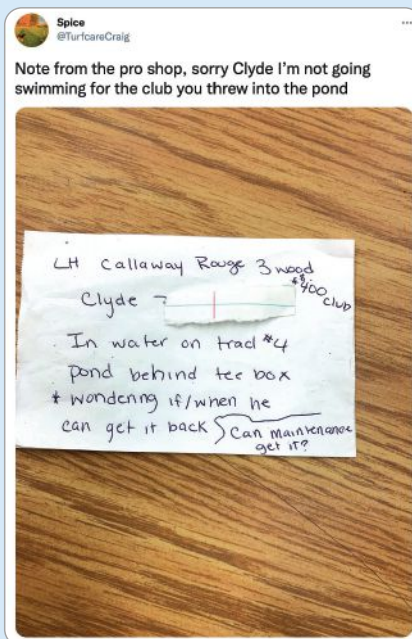 Spice
@TurfcareCraig
Note from the pro shop, sorry Clyde I'm not going
swimming for the club you threw into the pond
LH Callaway Rouge 3 wood
$400 club
Clyde -
In water on trad #4
pond behind tee box
* wondering if/when he
can get it back
Can maintenance
get it?